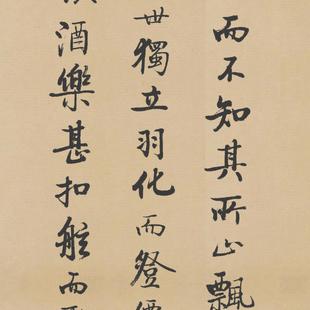 而不知其所止飄
世獨立羽化而登
酒樂甚扣舷而